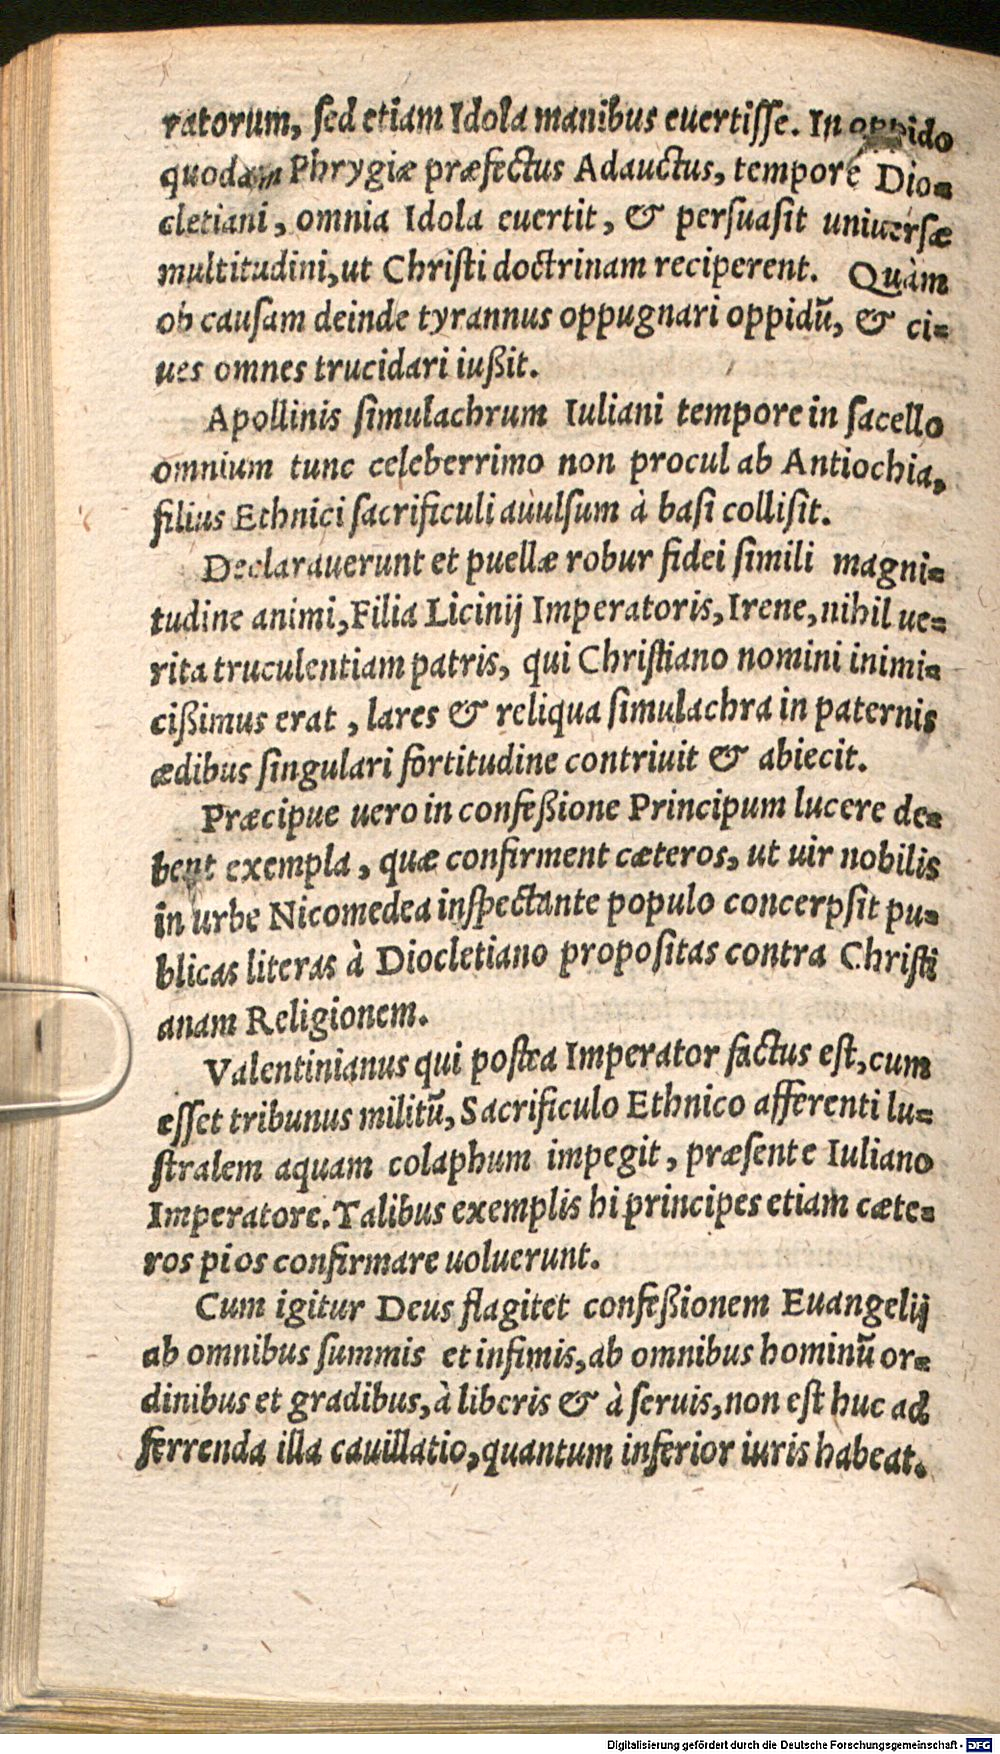 ratorum, ſed etiam Idola manibus euertiſſe. In oppido
quodam Phrygiæ præfectus Adauctus, tempore Dio-
cletiani, omnia Idola euertit, & perſuaſit uniuerſæ
multitudini, ut Chriſti doctrinam reciperent. Quàm
ob cauſam deinde tyrannus oppugnari oppidũ, & ci-
ues omnes trucidari iußit.
Apollinis ſimulachrum Iuliani tempore in ſacello
omnium tunc celeberrimo non procul ab Antiochia,
filius Ethnici ſacrificuli auulſum à baſi colliſit.
Declarauerunt et puellæ robur fidei ſimili magni-
tudine animi, Filia Licinij Imperatoris, Irene, nihil ue-
rita truculentiam patris, qui Chriſtiano nomini inimi-
cißimus erat, lares & reliqua ſimulachra in paternis
ædibus ſingulari fortitudine contriuit & abiecit.
Præcipue uero in confeßione Principum lucere de-
bent exempla, quæ confirment cæteros, ut uir nobilis
in urbe Nicomedea inſpectante populo concerpſit pu-
blicas literas à Diocletiano propoſitas contra Chriſti
anam Religionem.
Valentinianus qui poſtea Imperator factus eſt, cum
eſſet tribunus militũ, Sacrificulo Ethnico afferenti lu-
ſtralem aquam colaphum impegit, præſente Iuliano
Imperatore. Talibus exemplis hi principes etiam cæte-
ros pios confirmare uoluerunt.
Cum igitur Deus flagitet confeßionem Euangelij
ab omnibus ſummis et infimis, ab omnibus hominũ or-
dinibus et gradibus, à liberis & à ſeruis, non eſt huc ad
ferrenda illa cauillatio, quantum inferior iuris habeat.
Digitalisierung gefördert durch die Deutsche Forschungsgemeinschaft - DFG